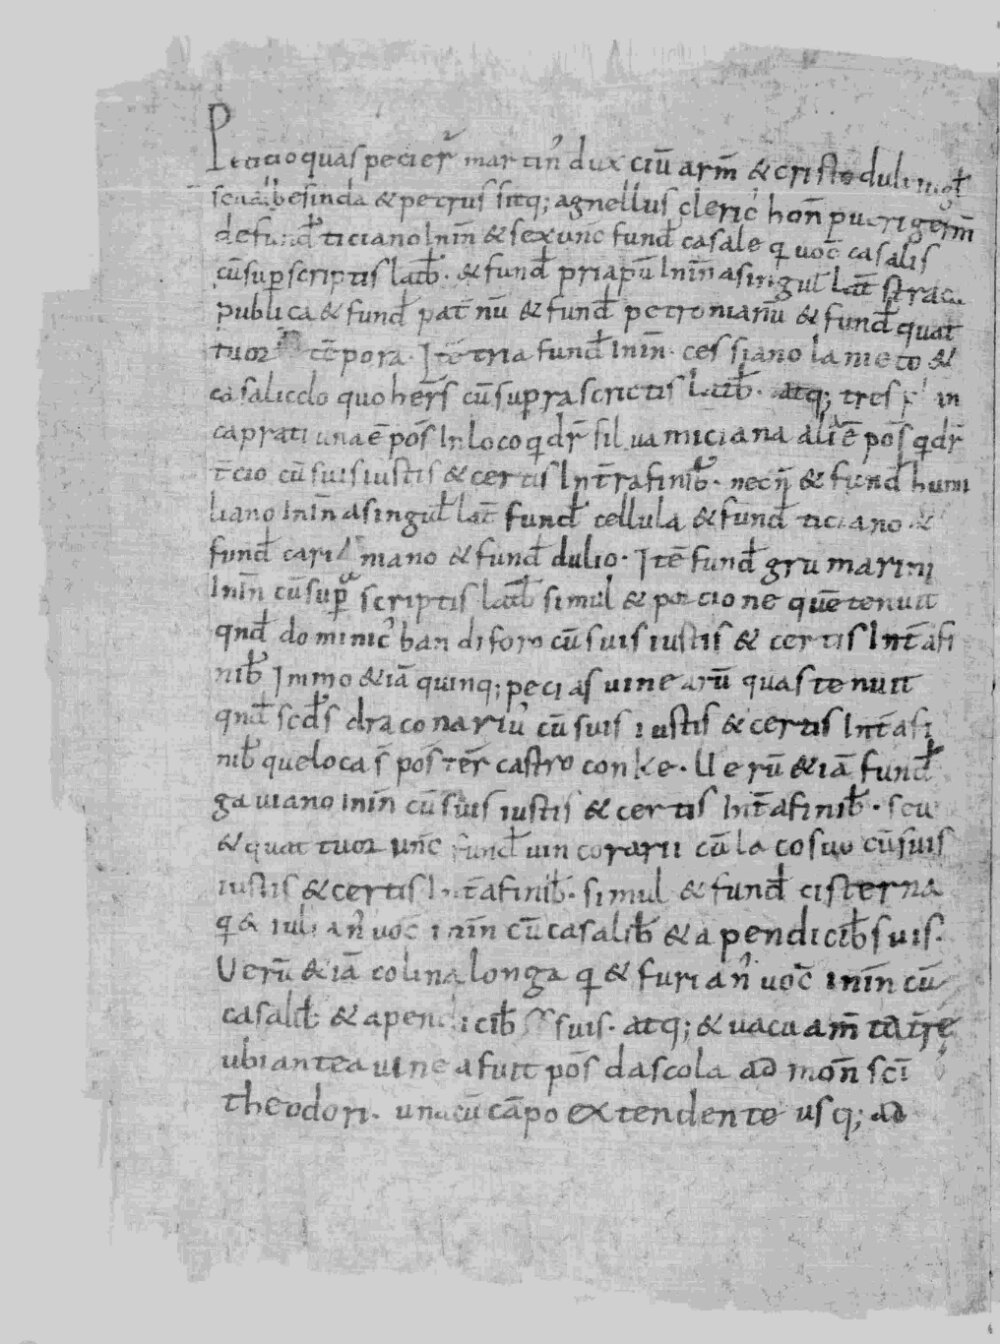 Peticio quas pecier̄ martin̄ dux ciū arm̄ & cristoduli magl̄
besinda & petrus sitq; agnellus cleric̄ hon̄ pueri germ̄
defund̄ ticiano Inin̄ & sex unc fund̄ casale q uoc̄ casalis
cū sup̄ scriptis lat̄ib̄ · & fund̄ priapū Inin̄ a singul̄ lat̄ strata
publica & fund̄ pat̄nū & fund̄ petronianū & fund̄ quat
tuor tēpora · Itē tria fund̄ Inin̄ · cessiano laneto &
casalicclo quo her̄s cū supra scrictis lat̄ib̄ · atq; tres in
caprati una ē pos̄ In loco q dr̄ silua miciana alia ē pos̄ q dr̄
t̄cio cū suis iustis & certis Int̄rafinib̄ · necn̄ & fund̄ humi
liano Inin̄ a singul̄ lat̄ fund̄ cellula & fund̄ ticiano · &
fund̄ cari niano & fund̄ dulio · Itē fund̄ gru marini
Inin̄ cū sup̄ scriptis lat̄ib̄ simul & porcione quē tenuit
qnd̄ dominic̄ ban di foro cū suis iustis & certis Int̄afi
nib̄ Immo & iā quinq; pecias uinearū quas tenuit
qnd̄ scd̄s draconariū cū suis iustis & certis Int̄afi
nib̄ que loca s̄ pos̄ ter̄ castro conke · Uerū & iā fund̄
gauiano Inin̄ cū suis iustis & certis Int̄afinib̄ · seu
& quattuor unc̄ fund̄ uincorarii cū lacosuo cū suis
iustis & certis Int̄afinib̄ · simul & fund̄ cisterna
q & iulian̄ uoc̄ inin̄ cū casalib̄ & apendicib̄ suis ·
Uerū & iā colina longa q & furian̄ uoc̄ inin̄ cū
casalib̄ & apendicib̄ suis · atq; & uacuam̄ t̄re
ubi antea uinea fuit pos̄ dascola ad mon̄ sc̄i
theodori · unacū cāpo extendente usq; ad